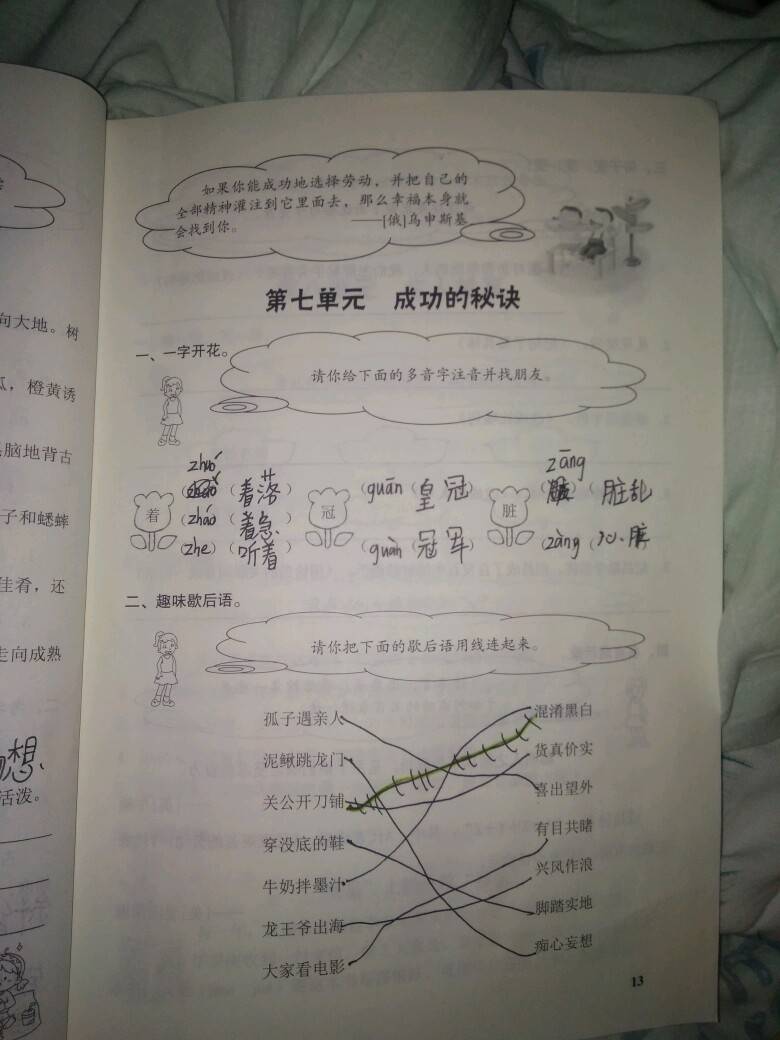 如果你能成功地选择劳动，并把自己的
全部精神灌注到它里面去，那么幸福本身就
会找到你。 ——[俄]乌申斯基
第七单元 成功的秘诀
一、一字开花。
请你给下面的多音字注音并找朋友。
着 zhuó （着落）
zháo （着急）
zhe （听着）
冠 （guān （皇冠）
guàn （冠军）
脏 zāng （脏乱
（zàng （心脏
二、趣味歇后语。
请你把下面的歇后语用线连起来。
孤子遇亲人 混淆黑白
泥鳅跳龙门 货真价实
关公开刀铺 喜出望外
穿没底的鞋 有目共睹
牛奶拌墨汁 兴风作浪
龙王爷出海 脚踏实地
大家看电影 痴心妄想
13
向大地。树
瓜，橙黄诱
脑地背古
子和蟋蟀
佳肴，还
走向成熟
想、
活泼。